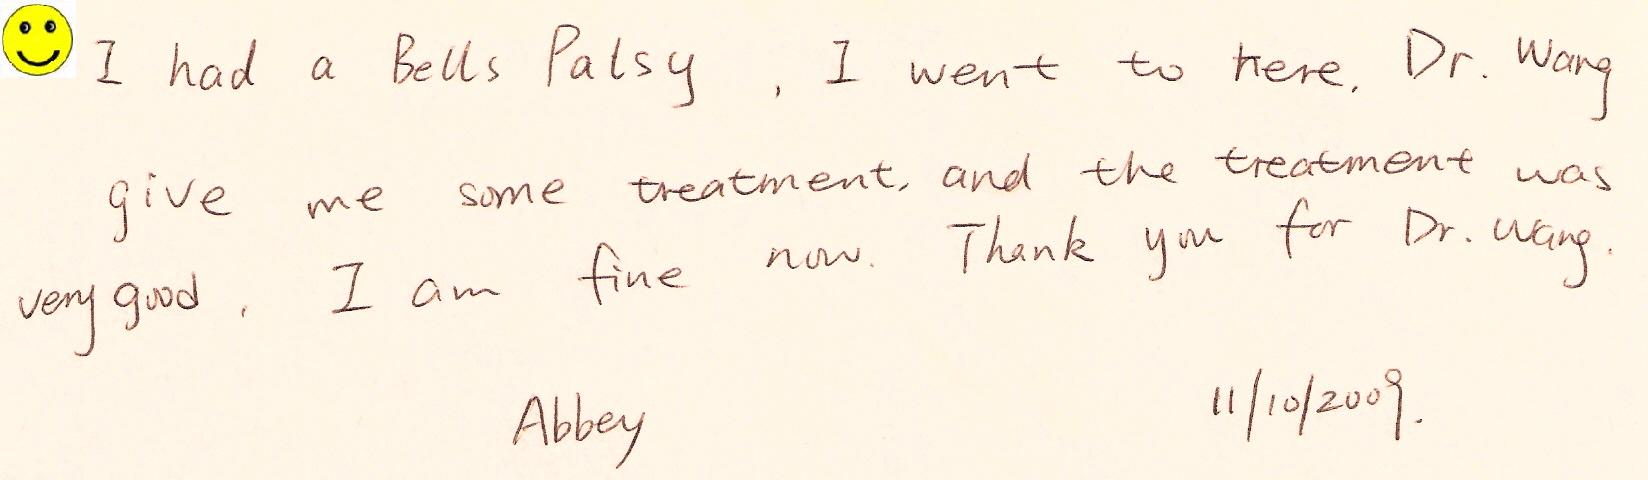 I had a Bells Palsy, I went to here, Dr. Wang
give me some treatment, and the treatment was
very good, I am fine now. Thank you for Dr. Wang.
Abbey 11/10/2009.